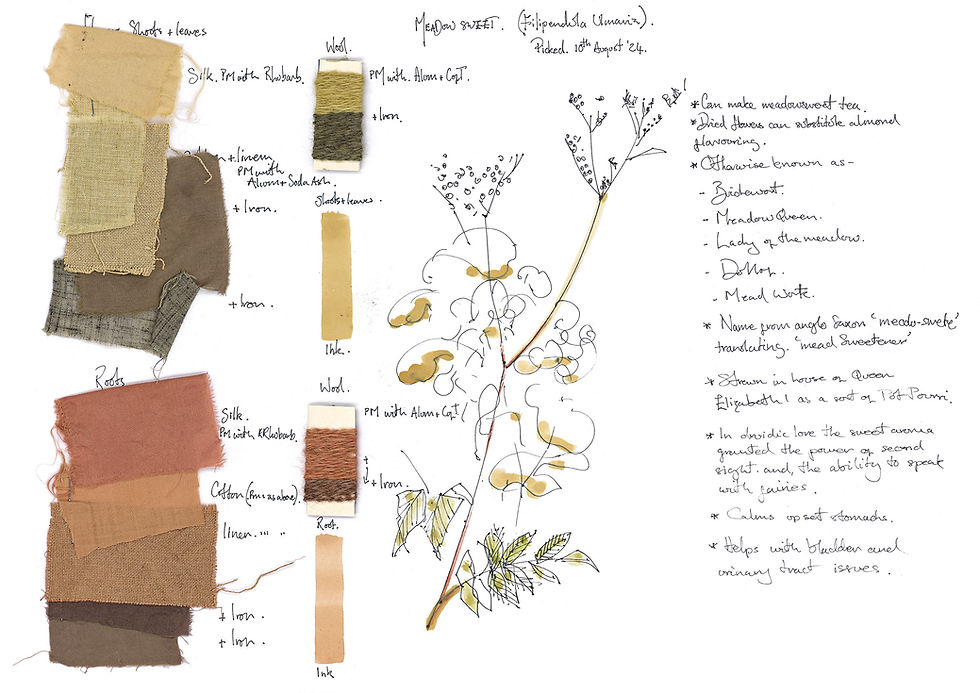 MEADOWSWEET. (Filipendula Ulmaria).
Picked. 10th August '24.
Shoots + leaves
Silk. PM with Rhubarb.
+ linen
PM with
Alum + Soda Ash.
+ Iron.
+ Iron.
Wool.
PM with. Alum + CofT.
+ Iron.
Shoots + leaves.
Ink.
Roots
Silk.
PM with Rhubarb.
Cotton (PM as above).
linen. "" "
+ Iron.
+ Iron.
Wool.
PM with Alum + CofT
+ Iron.
Root.
Ink
* Can make meadowsweet tea.
* Dried flowers can substitute almond
flavouring.
* Otherwise known as -
- Bridewort.
- Meadow Queen.
- Lady of the meadow.
- Dolloff.
- Mead Wort.
* Name from anglo Saxon 'meodu-swete'
translating. 'mead Sweetener'
* Strewn in house of Queen
Elizabeth I as a sort of Pot Pourri.
* In druidic lore the sweet aroma
granted the power of second
sight. and, the ability to speak
with fairies.
* Calms upset stomachs.
* Helps with bladder and
urinary tract issues.